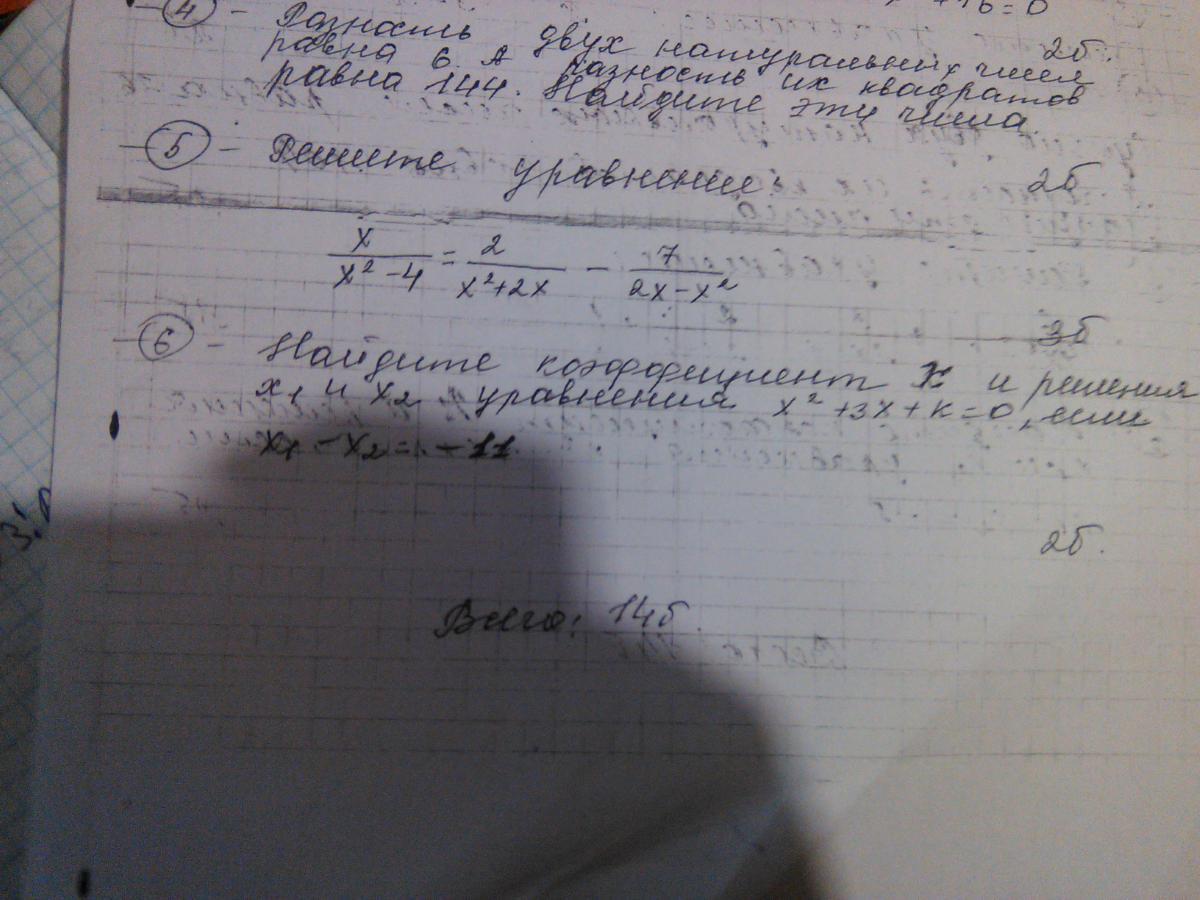 +16=0
4 - Разность двух натуральных чисел 2б.
равна 6. А разность их квадратов
равна 144. Найдите эти числа.
5 - Решите уравнение: 2б
x/(x²-4) = 2/(x²+2x) - 7/(2x-x²)
3б
6 - Найдите коэффициент К и решения
x₁ и x₂ уравнения x²+3x+к=0, если
x₁-x₂=-11
2б.
Всего: 14б